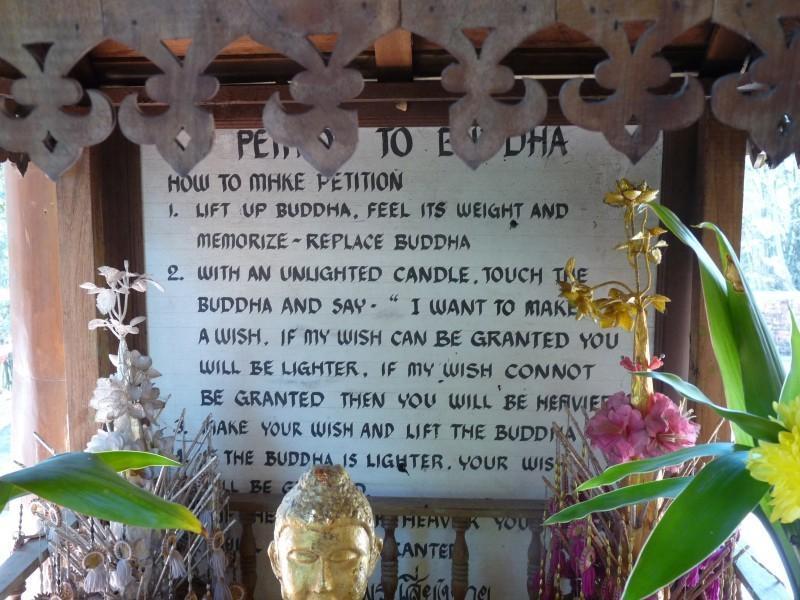 TO
HOW TO MHKE PETITION
1. LIFT UP BUDDHA, FEEL ITS WEIGHT AND
MEMORIZE - REPLACE BUDDHA
2. WITH AN UNLIGHTED CANDLE, TOUCH THE
BUDDHA AND SAY - " I WANT TO MAKE
A WISH. IF MY WISH CAN BE GRANTED YOU
WILL BE LIGHTER. IF MY WISH CONNOT
BE GRANTED THEN YOU WILL BE HEAVIER
3. MAKE YOUR WISH AND LIFT THE BUDDHA
THE BUDDHA IS LIGHTER, YOUR WISH
BE
YOU